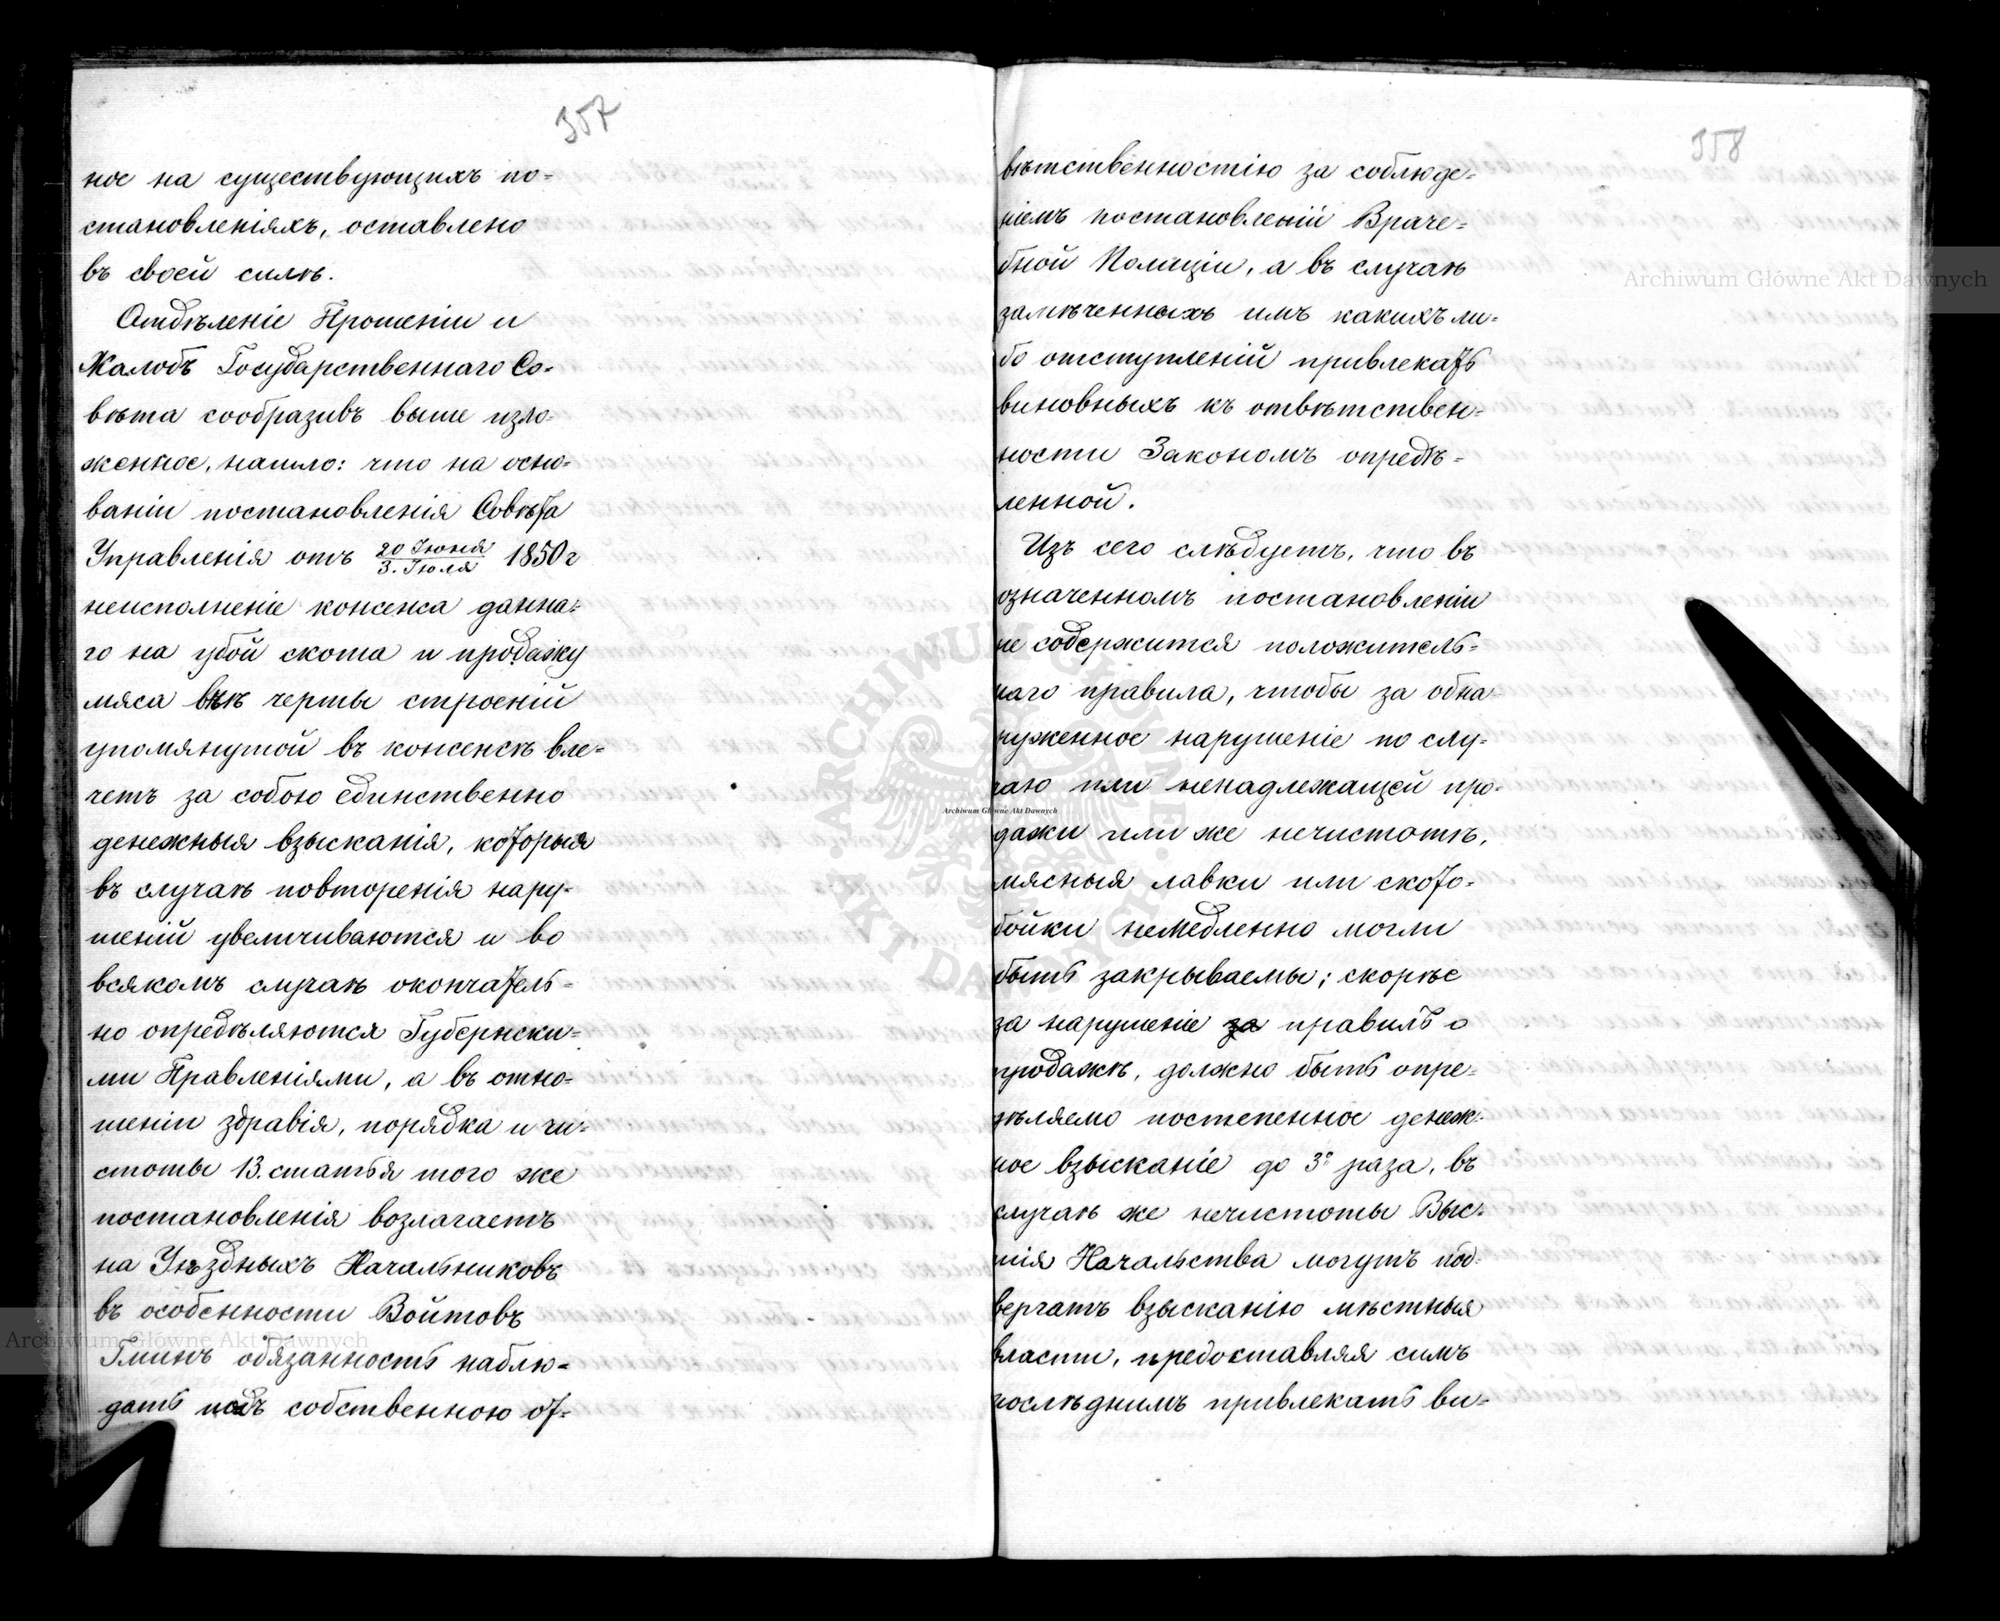 357
ное на существующихъ по=
становленіяхъ, оставлено
въ своей силѣ.
Отдѣленіе Прошеній и
Жалобъ Государственнаго Со=
вѣта сообразивъ выше изло=
женное, нашло: что на осно=
ваніи постановленія Совѣта
Управленія отъ 20 Іюня / 3. Іюля 1850 г
неисполненіе консенса данна=
го на убой скота и продажу
мяса внѣ черты строеній
упомянутой въ консенсѣ вле=
четъ за собою единственно
денежныя взысканія, которыя
въ случаѣ повторенія нару=
шеній увеличиваются и во
всякомъ случаѣ окончатель=
но опредѣляются Губернски=
ми Правленіями, а въ отно=
шеніи здравія, порядка и чи=
стоты 13. статья того же
постановленія возлагаетъ
на Уѣздныхъ Начальниковъ
въ особенности Войтовъ
Гминъ обязанность наблю=
дать подъ собственною от=
358
вѣтственностію за соблюде=
ніемъ постановленій Враче=
бной Полиціи, а въ случаѣ
замѣченныхъ имъ какихъ ли=
бо отступленій привлекать
виновныхъ къ отвѣтствен=
ности Закономъ опредѣ=
ленной.
Изъ сего слѣдуетъ, что въ
означенномъ постановленіи
не содержится положитель=
наго правила, чтобы за обна=
руженное нарушеніе по слу=
чаю или ненадлежащей про=
дажи или же нечистотѣ,
мясныя лавки или ското=
бойки немедленно могли
быть закрываемы; скорѣе
за нарушеніе за правилъ о
продажѣ, должно быть опре=
дѣляемо постепенное денеж=
ное взысканіе до 3º раза, въ
случаѣ же нечистоты Выс=
шія Начальства могутъ под=
вергать взысканію мѣстныя
власти, предоставляя симъ
послѣднимъ привлекать ви=
Archiwum Główne Akt Dawnych
Archiwum Główne Akt Dawnych
Archiwum Główne Akt Dawnych
ARCHIWUM GŁÓWNE AKT DAWNYCH